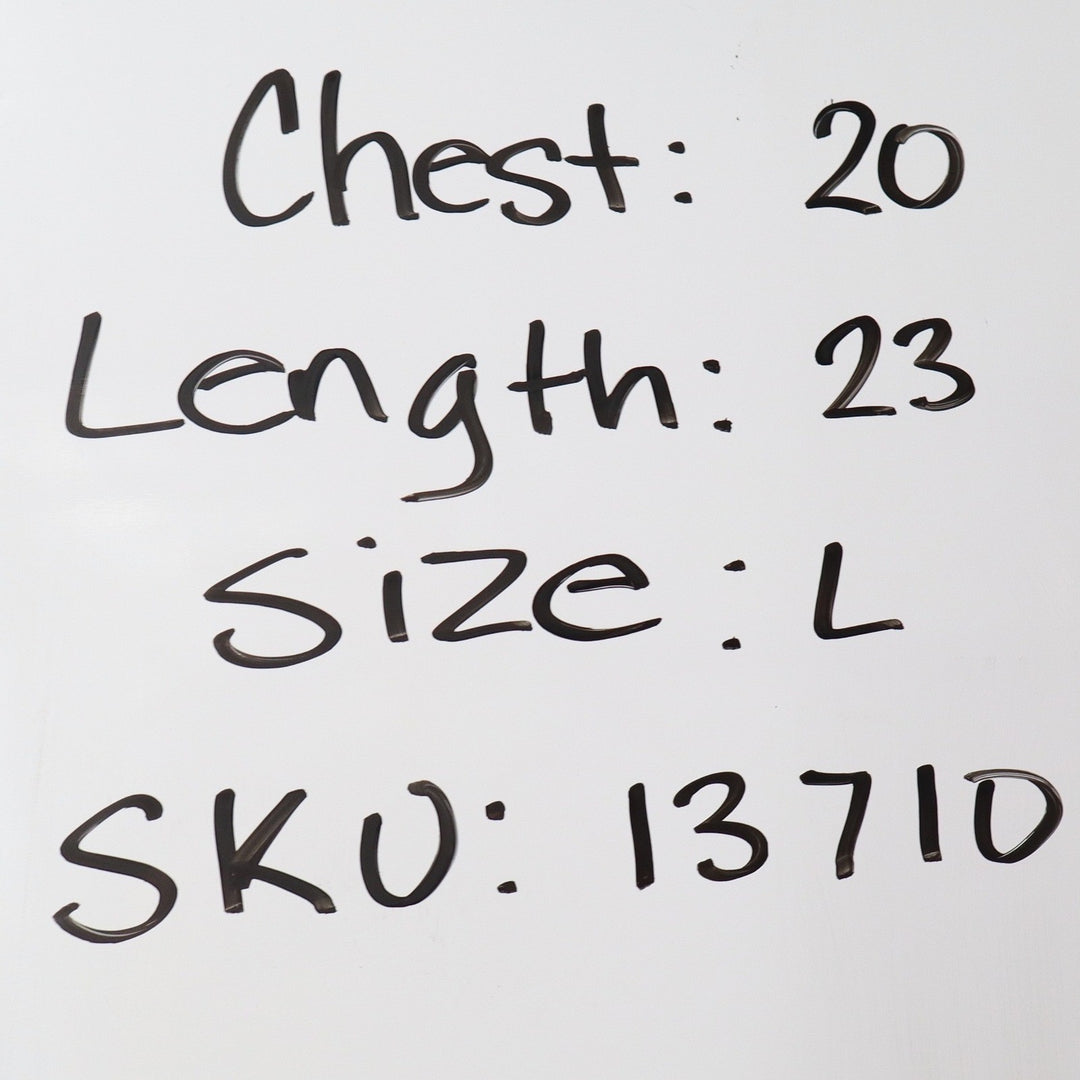 Chest: 20
Length: 23
Size: L
SKU: 13710